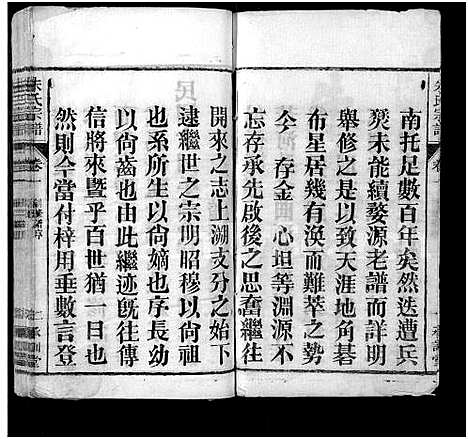 南托足數百年矣然迭遭兵
燹未能續婺源老譜而詳明
舉修之以致天涯地角碁
布星居幾有渙而難萃之勢
今 存金 心坦等淵源不
忘存承先啟後之思奮繼往
開來之志上溯支分之始下
逮繼世之宗明昭穆以尚祖
也系所生以尚嫡也序長幼
以尚齒也由此繼迹旣往傳
信將來暨乎百世猶一日也
然則今當付梓用垂數言登
朱氏宗譜
卷